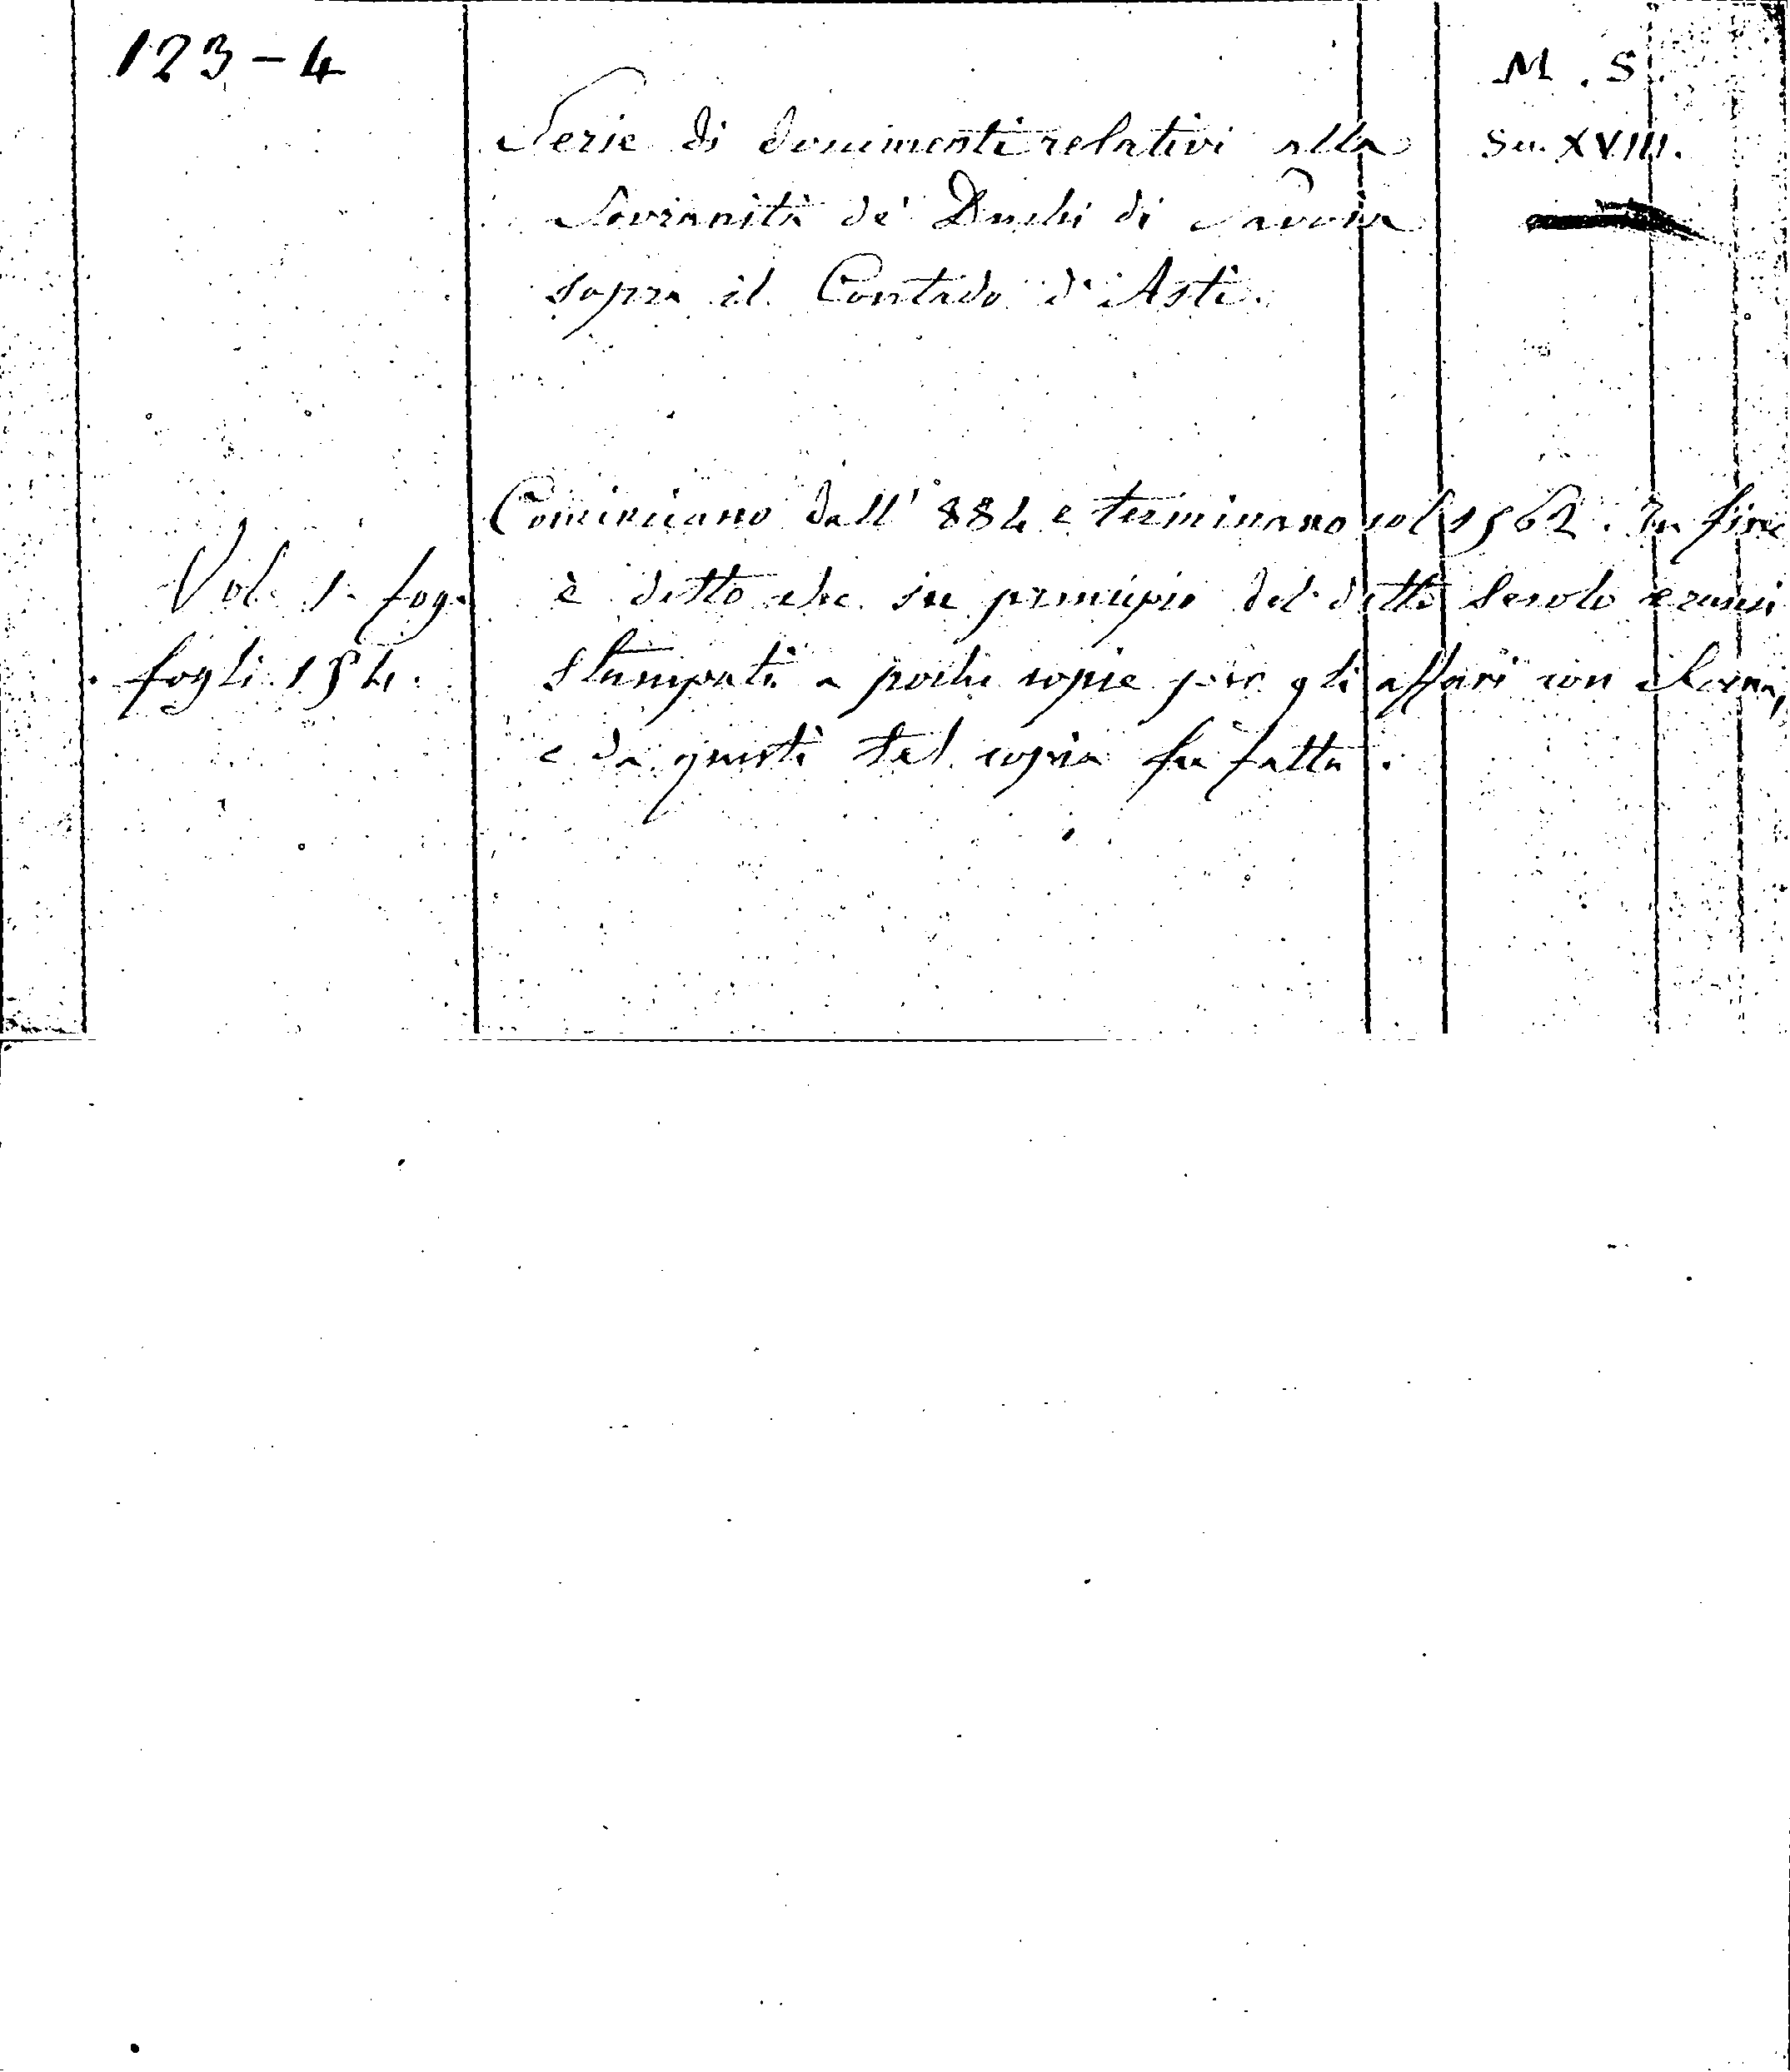 123-4
M. S.
Serie di documenti relativi alla
Sec. XVIII.
Sovranità de' Duchi di Savoia
sopra il Contado d'Asti.
Cominciano dall' 884 e terminano col 1562. In fine
Vol. 1. fog.
è detto che in principio del detto Secolo eransi
fogli 154.
stampati a poche copie per gli affari con Roma,
e da questi tal copia fu fatta.